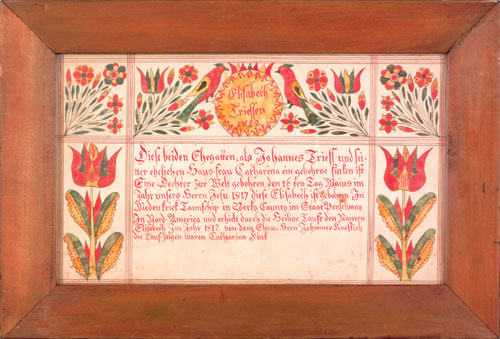 Elisabeth
Triesen
Diese beiden Ehegatten, als Johannes Triess und sei-
ner ehelichen Hausfrau Catharina ein gebohrne finken ist
Eine Dochter zur Welt gebohren den 16 ten Tag Mayus im
Jahr unsers Herrn Jesu 1817 diese Elisabeth ist gebohren In
Wiedenfrick Taunschip in Berks Caunty im Staat Pensilvans
In Nord-America und erhielt durch die Heilige Taufe den Namen
Elisabeth Im Jahr 1817 von dem Ehrw. Hern Johannes
die Taufzeigen waren Catharina Fink